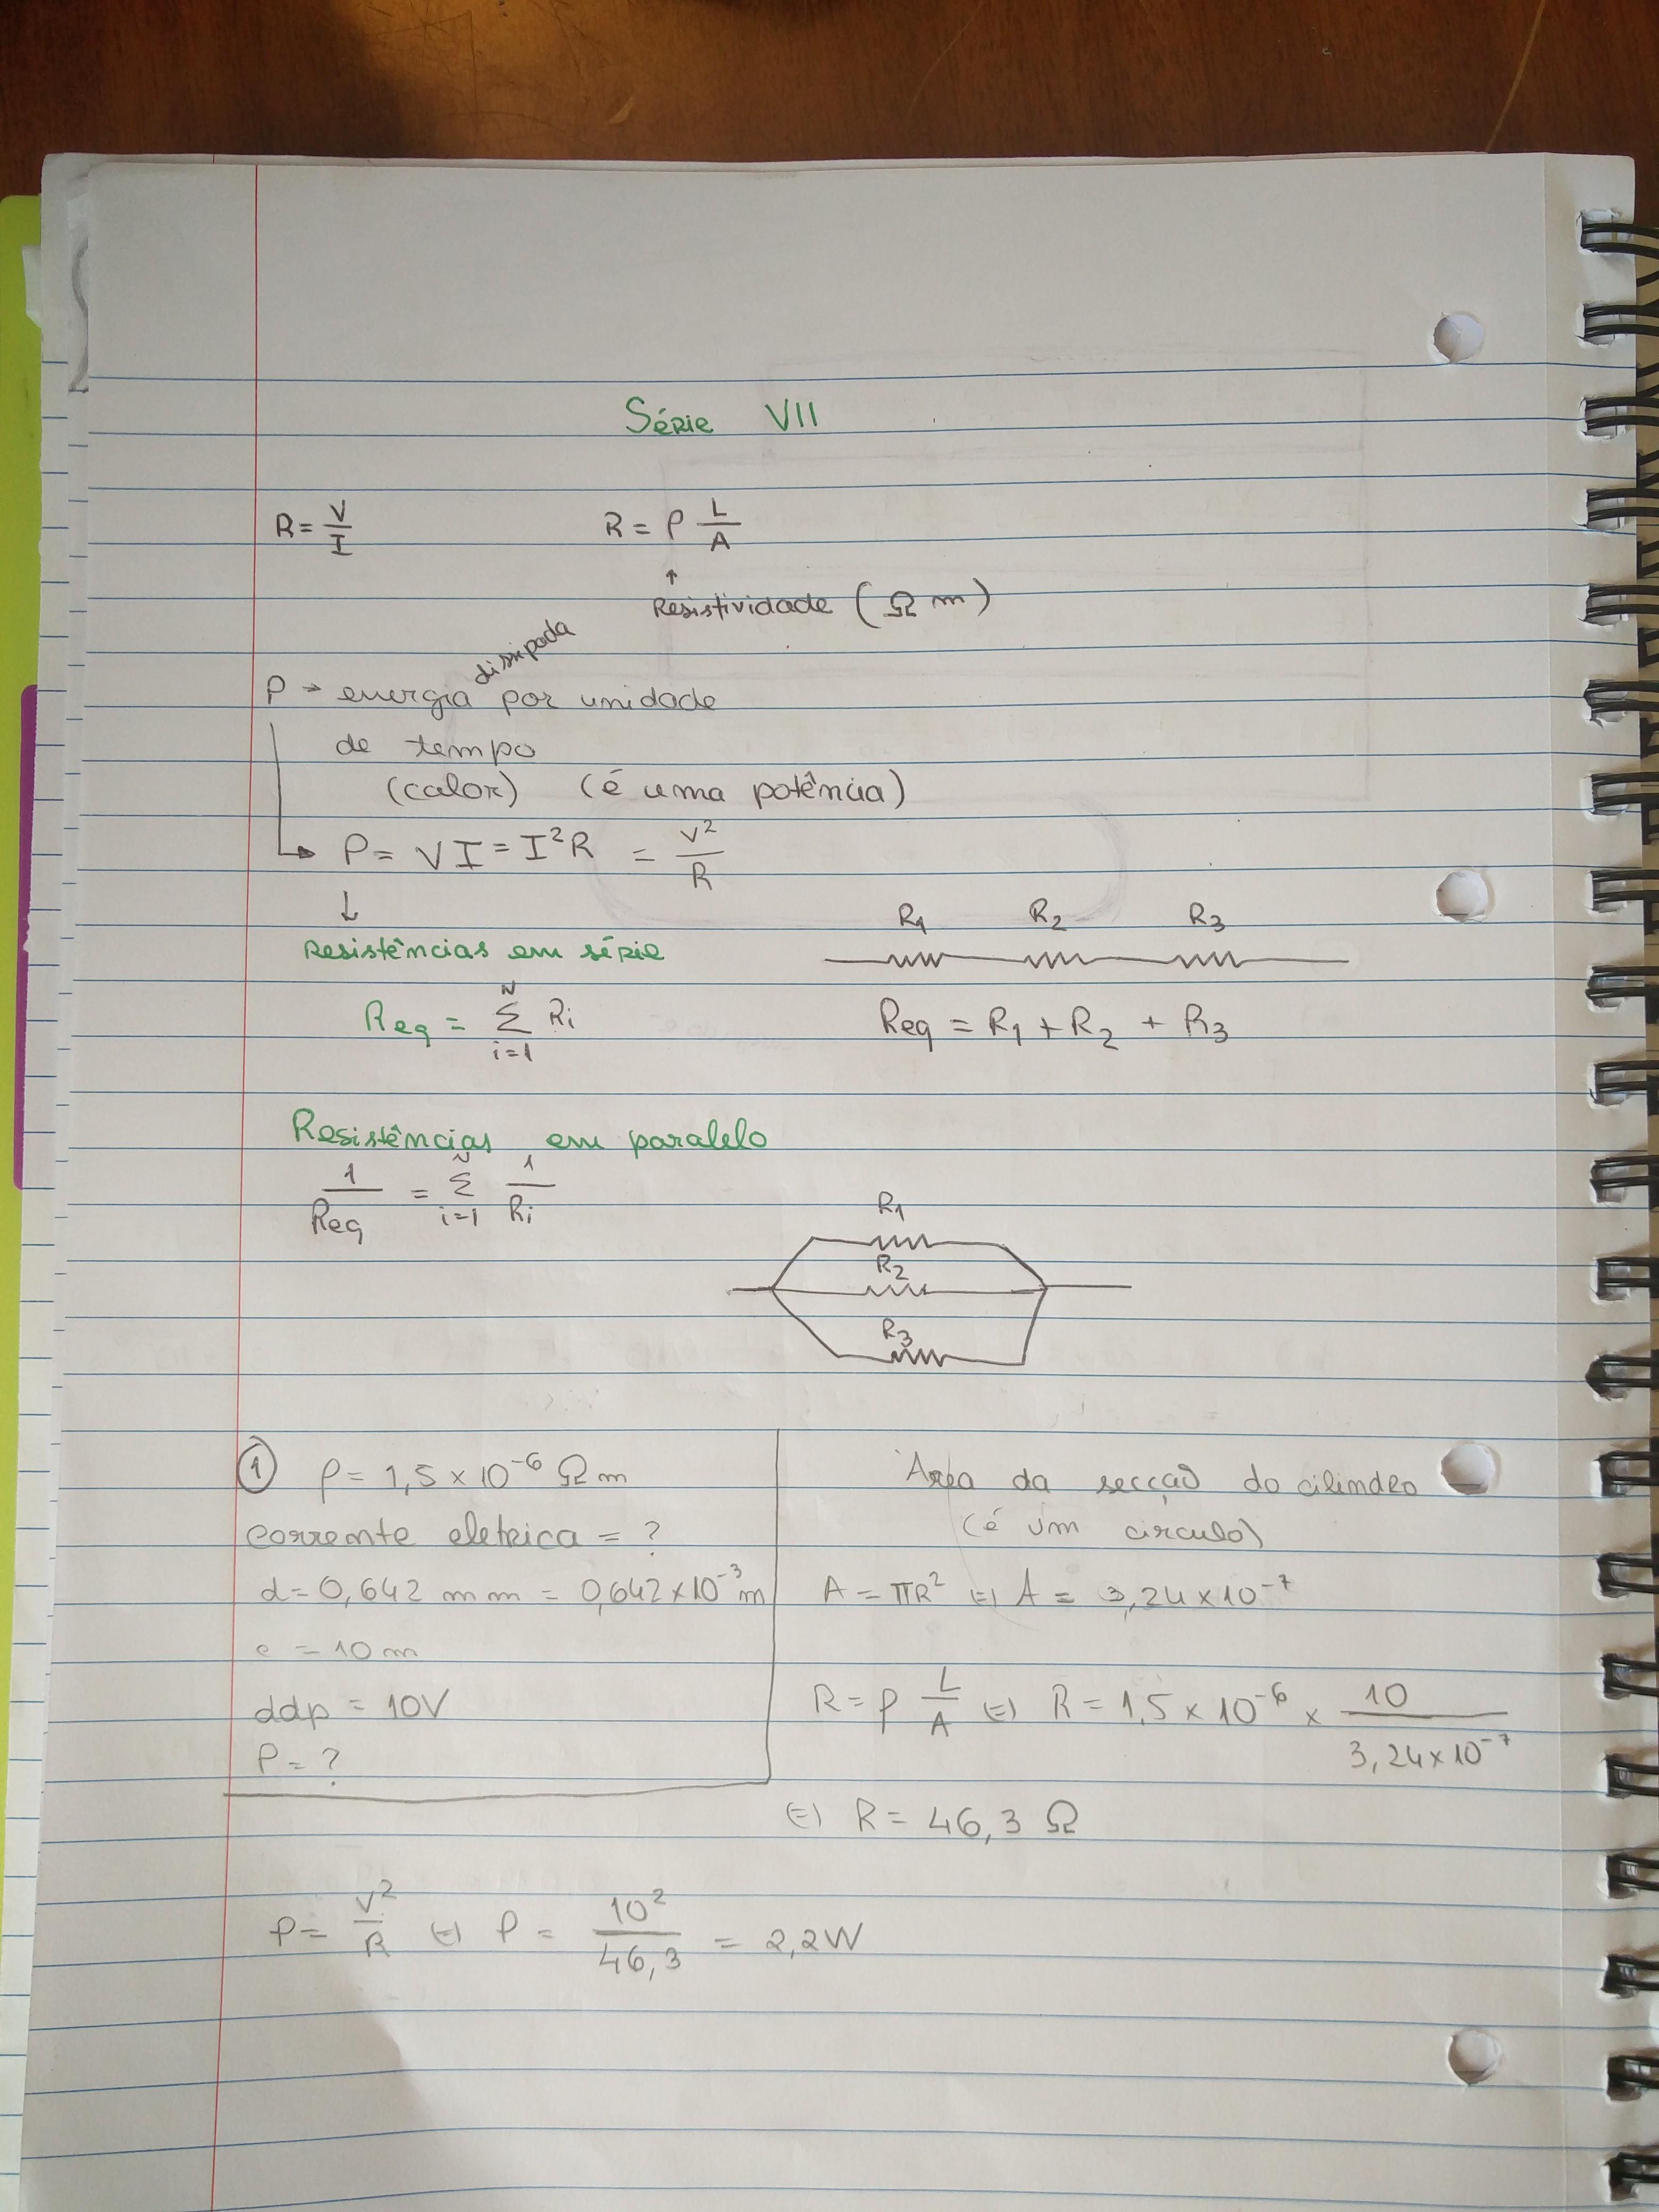 Série VII
R = V/I    R = ρ L/A
↑
Resistividade (Ω m)
P → energia dissipada por unidade
de tempo
(calor) (é uma potência)
↳ P = VI = I²R = V²/R
↓
Resistências em série
R1 R2 R3
Req = Σ_{i=1}^{N} Ri    Req = R1 + R2 + R3
Resistências em paralelo
1/Req = Σ_{i=1}^{N} 1/Ri
R1
R2
R3
① ρ = 1,5 × 10⁻⁶ Ω m
corrente eletrica = ?
d = 0,642 mm = 0,642 × 10⁻³ m
e = 10 m
ddp = 10V
P = ?
Area da secção do cilindro
(é um circulo)
A = πR² (=) A = 3,24 × 10⁻⁷
R = ρ L/A (=) R = 1,5 × 10⁻⁶ × 10/3,24 × 10⁻⁷
(=) R = 46,3 Ω
P = V²/R (=) P = 10²/46,3 = 2,2W